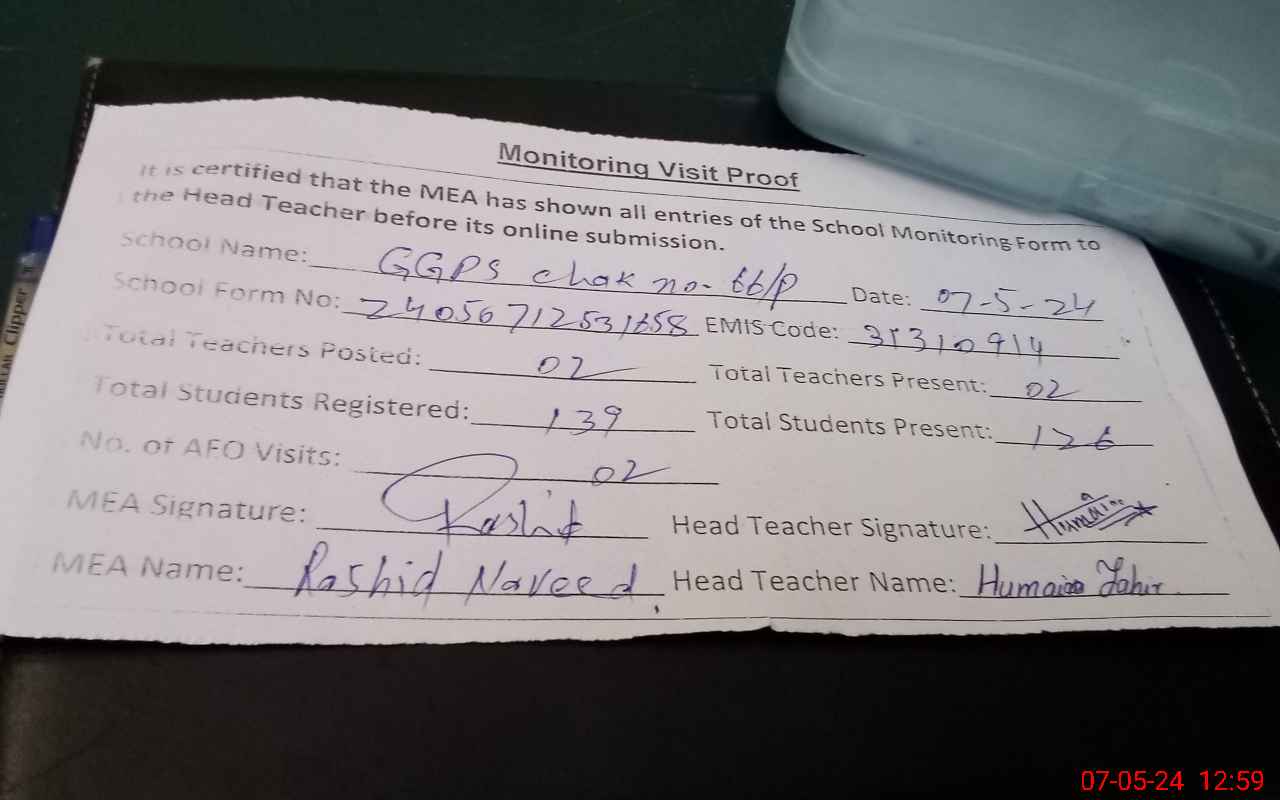 Monitoring Visit Proof
It is certified that the MEA has shown all entries of the School Monitoring Form to
the Head Teacher before its online submission.
School Name: GGPS chak no. 66/P Date: 07-5-24
School Form No: EMIS Code: 31310914
Total Teachers Posted: 02 Total Teachers Present: 02
Total Students Registered: 139 Total Students Present: 126
No. of AEO Visits: 02
MEA Signature: Rashid Head Teacher Signature: Humaira
MEA Name: Rashid Naveed Head Teacher Name: Humaira Tahir
Clipper
07-05-24 12:59